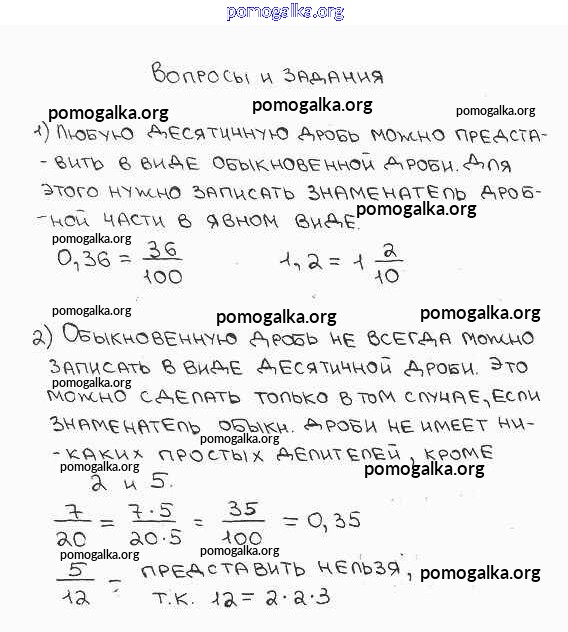 pomogalka.org
Вопросы и задания
pomogalka.org pomogalka.org pomogalka.org
1) Любую десятичную дробь можно предста-
-вить в виде обыкновенной дроби. Для
этого нужно записать знаменатель дроб-
-ной части в явном виде.
pomogalka.org
pomogalka.org
0,36 = 36/100 1,2 = 1 2/10
pomogalka.org pomogalka.org pomogalka.org
2) Обыкновенную дробь не всегда можно
записать в виде десятичной дроби. Это
pomogalka.org
можно сделать только в том случае, если
знаменатель обыкн. дроби не имеет ни-
pomogalka.org
-каких простых делителей, кроме
pomogalka.org pomogalka.org
2 и 5.
7/20 = 7·5/20·5 = 35/100 = 0,35
pomogalka.org pomogalka.org
5/12 = представить нельзя,
pomogalka.org
т.к. 12 = 2·2·3